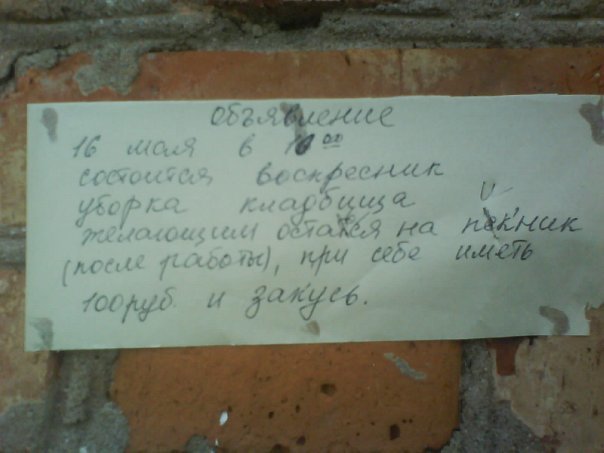 Объявление
16 мая в 10 00
состоится воскресник
уборка кладбища
желающим остатся на пекник
(после работы), при себе иметь
100 руб. и закусь.